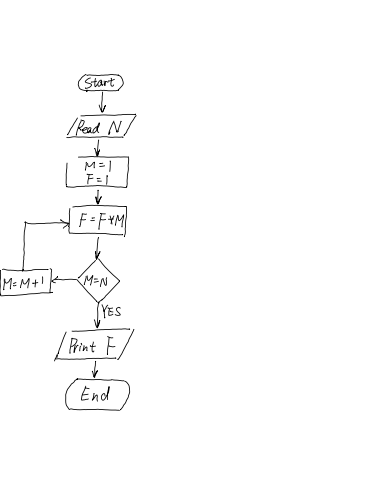 Start
Read N
M=1
F=1
F=F*M
M=M+1
M=N
YES
Print F
End